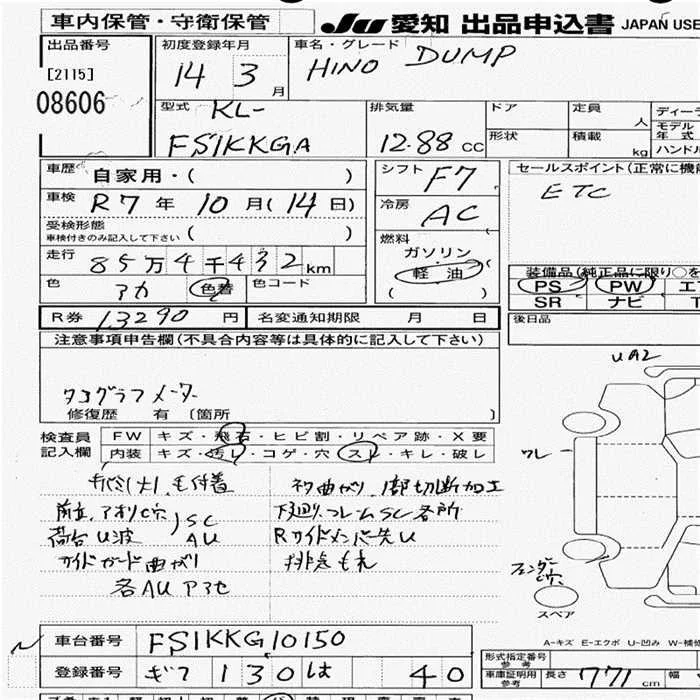 車内保管・守衛保管
JU 愛知 出品申込書 JAPAN USE
出品番号
[2115]
08606
初度登録年月
14 3 月
車名・グレード
HINO DUMP
型式 KL-
FS1KKGA
排気量
12.88 cc
ドア
形状
定員 人
積載 kg
ディーラ
モデル年式
ハンドル
車歴 自家用・( )
車検 R7年 10月(14日)
受検形態
車検付きのみ記入して下さい ( )
走行 85万4千432km
色 アカ 色着 色コード
シフト F7
冷房 AC
燃料
ガソリン
軽油
( )
セールスポイント(正常に機
ETC
装備品(純正品に限り○を
PS PW エ
SR ナビ T
後日品
R券 13290 円 名変通知期限 月 日
注意事項申告欄(不具合内容等は具体的に記入して下さい)
タコグラフメーター
修復歴 有 〔箇所 〕
検査員記入欄
FW キズ・飛石・ヒビ割・リペア跡・X要
内装 キズ・汚レ・コゲ・穴・スレ・キレ・破レ
UA2
ワレ
前立、アオリ穴
荷台U波
SC
AU
サイドガード曲がり
各AUアセ
曲がり、1部切断加工
下廻り、フレームSC各所
Rサイドメンバー先U
排気もれ
フェンダー
スペア
A-キズ E-エクボ U-凹み W-補修
車台番号 FS1KKG10150
登録番号 ギフ 130 は 40
形式指定番号
参考
車庫証明用
参考
長さ 771 cm 幅